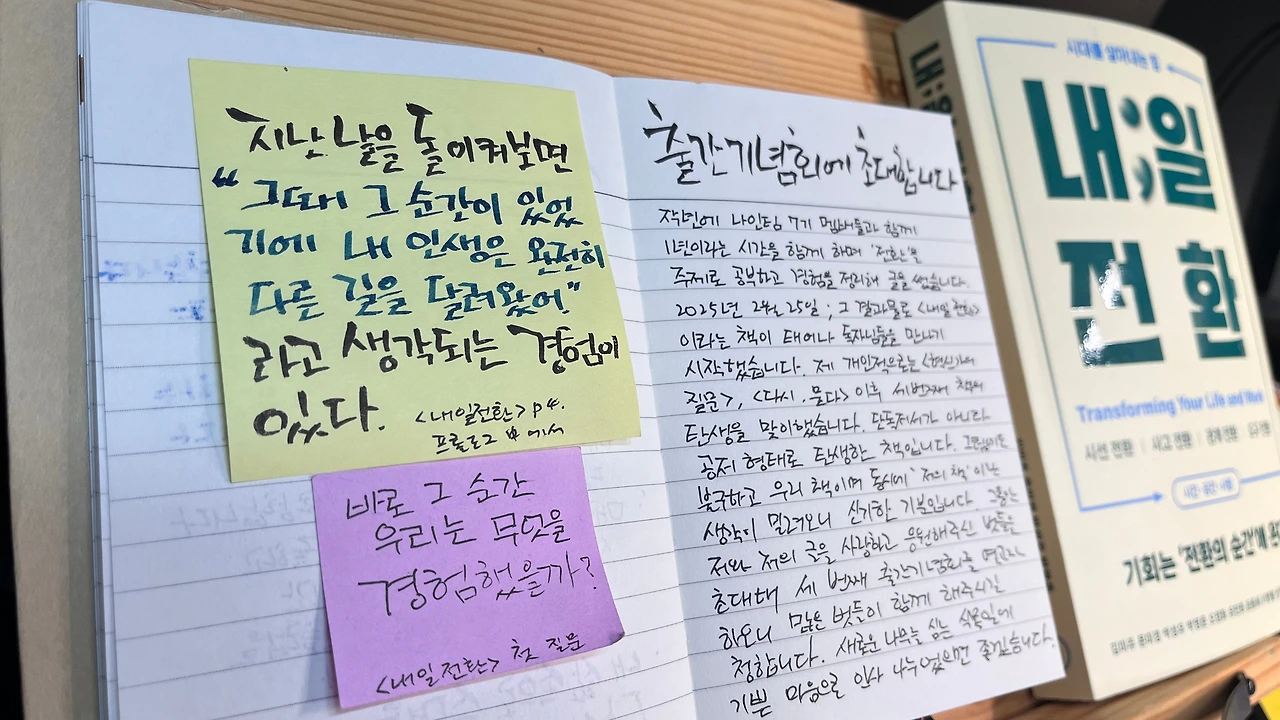 지난 날을 돌이켜보면
“그때 그 순간이 있었
기에 내 인생은 완전히
다른 길을 달려왔어”
라고 생각되는 경험이
있다.
<내일전환> P4.
프롤로그 中에서
바로 그 순간
우리는 무엇을
경험했을까?
<내일전환> 첫 질문
출간기념회에 초대합니다
작년에 나인팀 7기 멤버들과 함께
1년이라는 시간을 함께 하며 '전환'을
주제로 공부하고 경험을 정리해 글을 썼습니다.
2025년 2월 25일 ; 그 결과물로 <내일전환>
이라는 책이 태어나 독자님들을 만나기
시작했습니다. 제 개인적으로는 <혁신가의
질문>, <다시, 묻다> 이후 세번째 책의
탄생을 맞이했습니다. 단독저서가 아니라
공저 형태로 탄생한 책입니다. 그럼에도
불구하고 우리 책이며 동시에 '저의 책'이란
생각이 밀려오니 신기한 기분입니다. 그동안
저와 저의 글을 사랑하고 응원해주신 벗들을
초대해 세 번째 출간기념회를 열고자
하오니 많은 벗들이 함께 해주시길
청합니다. 새로운 나무를 심는 식목일에
기쁜 마음으로 인사 나누었으면 좋겠습니다.
시대를 살아내는 힘
내;일
전환
Transforming Your Life and Work
시선 전환 | 사고 전환 | 관계 전환 | 도구 전환
시간·공간·사람
기회는 '전환의 순간'에